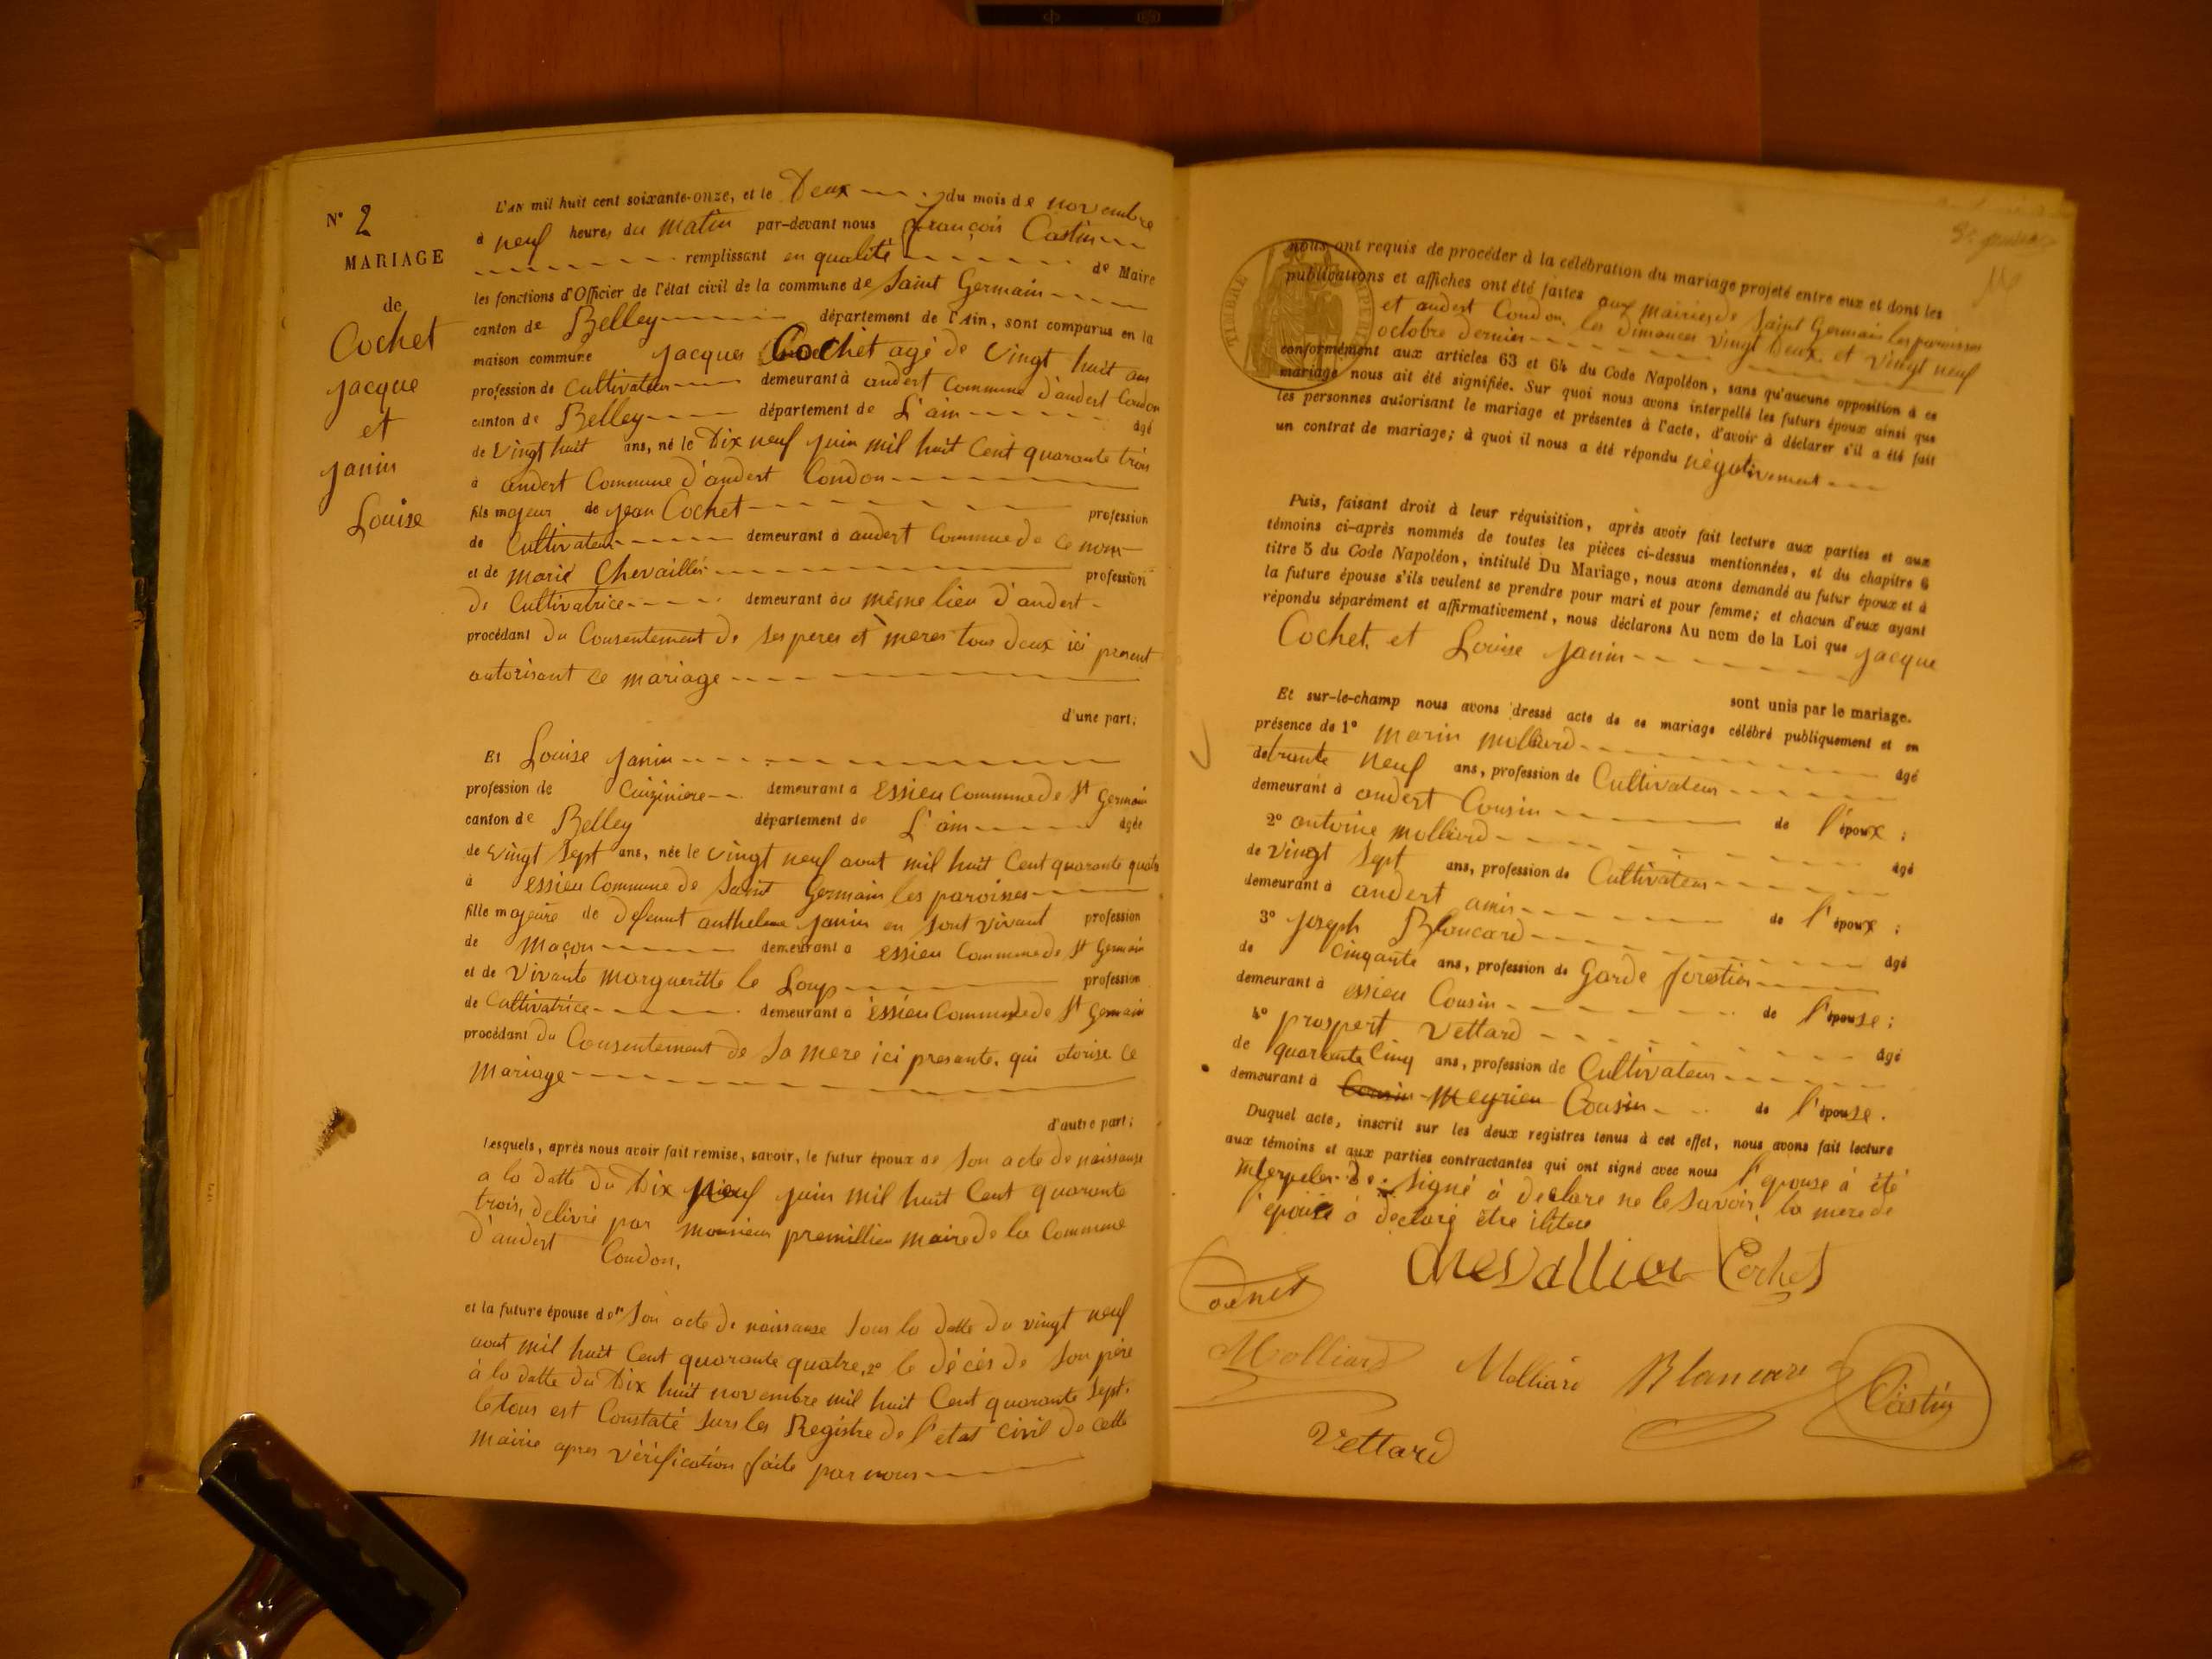 N° 2
MARIAGE
de
Cochet
jacque
et
janin
Louise
L'AN mil huit cent soixante-onze, et le Deux du mois de novembre
à neuf heures du matin par-devant nous françois Castin
remplissant en qualité de Maire
les fonctions d'Officier de l'état civil de la commune de Saint Germain
canton de Belley département de l'Ain, sont comparus en la
maison commune jacques Cochet agé de vingt huit ans
profession de Cultivateur demeurant à andert Commune d'andert Condon
canton de Belley département de L'ain âgé
de vingt huit ans, né le Dix neuf juin mil huit Cent quarante trois
à andert Commune d'andert Condon
fils majeur de jean Cochet profession
de Cultivateur demeurant à andert Commune de ce nom
et de marie Chevaillier profession
de Cultivatrice demeurant au même lieu d'andert
procédant du Consentement de ses peres et meres tous deux ici present
autorisant ce mariage
d'une part;
Et Louise janin
profession de Cuiziniere demeurant à Essieu Commune de St Germain
canton de Belley département de L'ain âgée
de vingt sept ans, née le vingt neuf aout mil huit Cent quarante quatre
à essieu Commune de Saint Germain les paroisses
fille majeure de defunt anthelme janin en sont vivant profession
de maçon demeurant à essieu Commune de St Germain
et de vivante margueritte le Loup profession
de Cultivatrice demeurant à Essieu Commune de St Germain
procédant du Consentement de sa mere ici presante, qui otorise ce
mariage
d'autre part;
Lesquels, après nous avoir fait remise, savoir, le futur époux de son acte de naissance
a la datte du Dix neuf juin mil huit Cent quarante
trois, delivré par monsieur premillieu maire de la Commune
d'andert Condon,
et la future épouse de 1° son acte de naissance sous la datte du vingt neuf
aout mil huit Cent quarante quatre, 2° le décès de son père
à la datte du Dix huit novembre mil huit Cent quarante sept.
le tous est Constaté sur les Registre de l'etat civil de cette
mairie apres vérification faite par nous
TIMBRE
nous ont requis de procéder à la célébration du mariage projeté entre eux et dont les
publications et affiches ont été faites aux mairies de Saint Germain les paroisses
et andert Condon, les dimances vingt Deux et vingt neuf
octobre dernier
conformément aux articles 63 et 64 du Code Napoléon, sans qu'aucune opposition à ce
mariage nous ait été signifiée. Sur quoi nous avons interpellé les futurs époux ainsi que
les personnes autorisant le mariage et présentes à l'acte, d'avoir à déclarer s'il a été fait
un contrat de mariage; à quoi il nous a été répondu négativement
Puis, faisant droit à leur réquisition, après avoir fait lecture aux parties et aux
témoins ci-après nommés de toutes les pièces ci-dessus mentionnées, et du chapitre 6
titre 5 du Code Napoléon, intitulé Du Mariage, nous avons demandé au futur époux et à
la future épouse s'ils veulent se prendre pour mari et pour femme; et chacun d'eux ayant
répondu séparément et affirmativement, nous déclarons Au nom de la Loi que jacque
Cochet, et Louise janin
sont unis par le mariage.
Et sur-le-champ nous avons dressé acte de ce mariage célébré publiquement et en
présence de 1° marin molliard âgé
de trante neuf ans, profession de Cultivateur
demeurant à andert Cousin de l'époux;
2° antoine molliard âgé
de vingt sept ans, profession de Cultivateur
demeurant à andert amis de l'époux;
3° joseph Blancard âgé
de cinqante ans, profession de Garde forestier
demeurant à essieu Cousin de l'épouse;
4° prospert Vettard âgé
de quarante Cinq ans, profession de Cultivateur
demeurant à Cousin Meyrieu Cousin de l'épouse.
Duquel acte, inscrit sur les deux registres tenus à cet effet, nous avons fait lecture
aux témoins et aux parties contractantes qui ont signé avec nous l'épouse à été
interpeler de signé à declare ne le savoir, la mere de
l'épouse à declaré être ilitere
Chevallier Cochet
Molliard Molliard Castin
Vettard